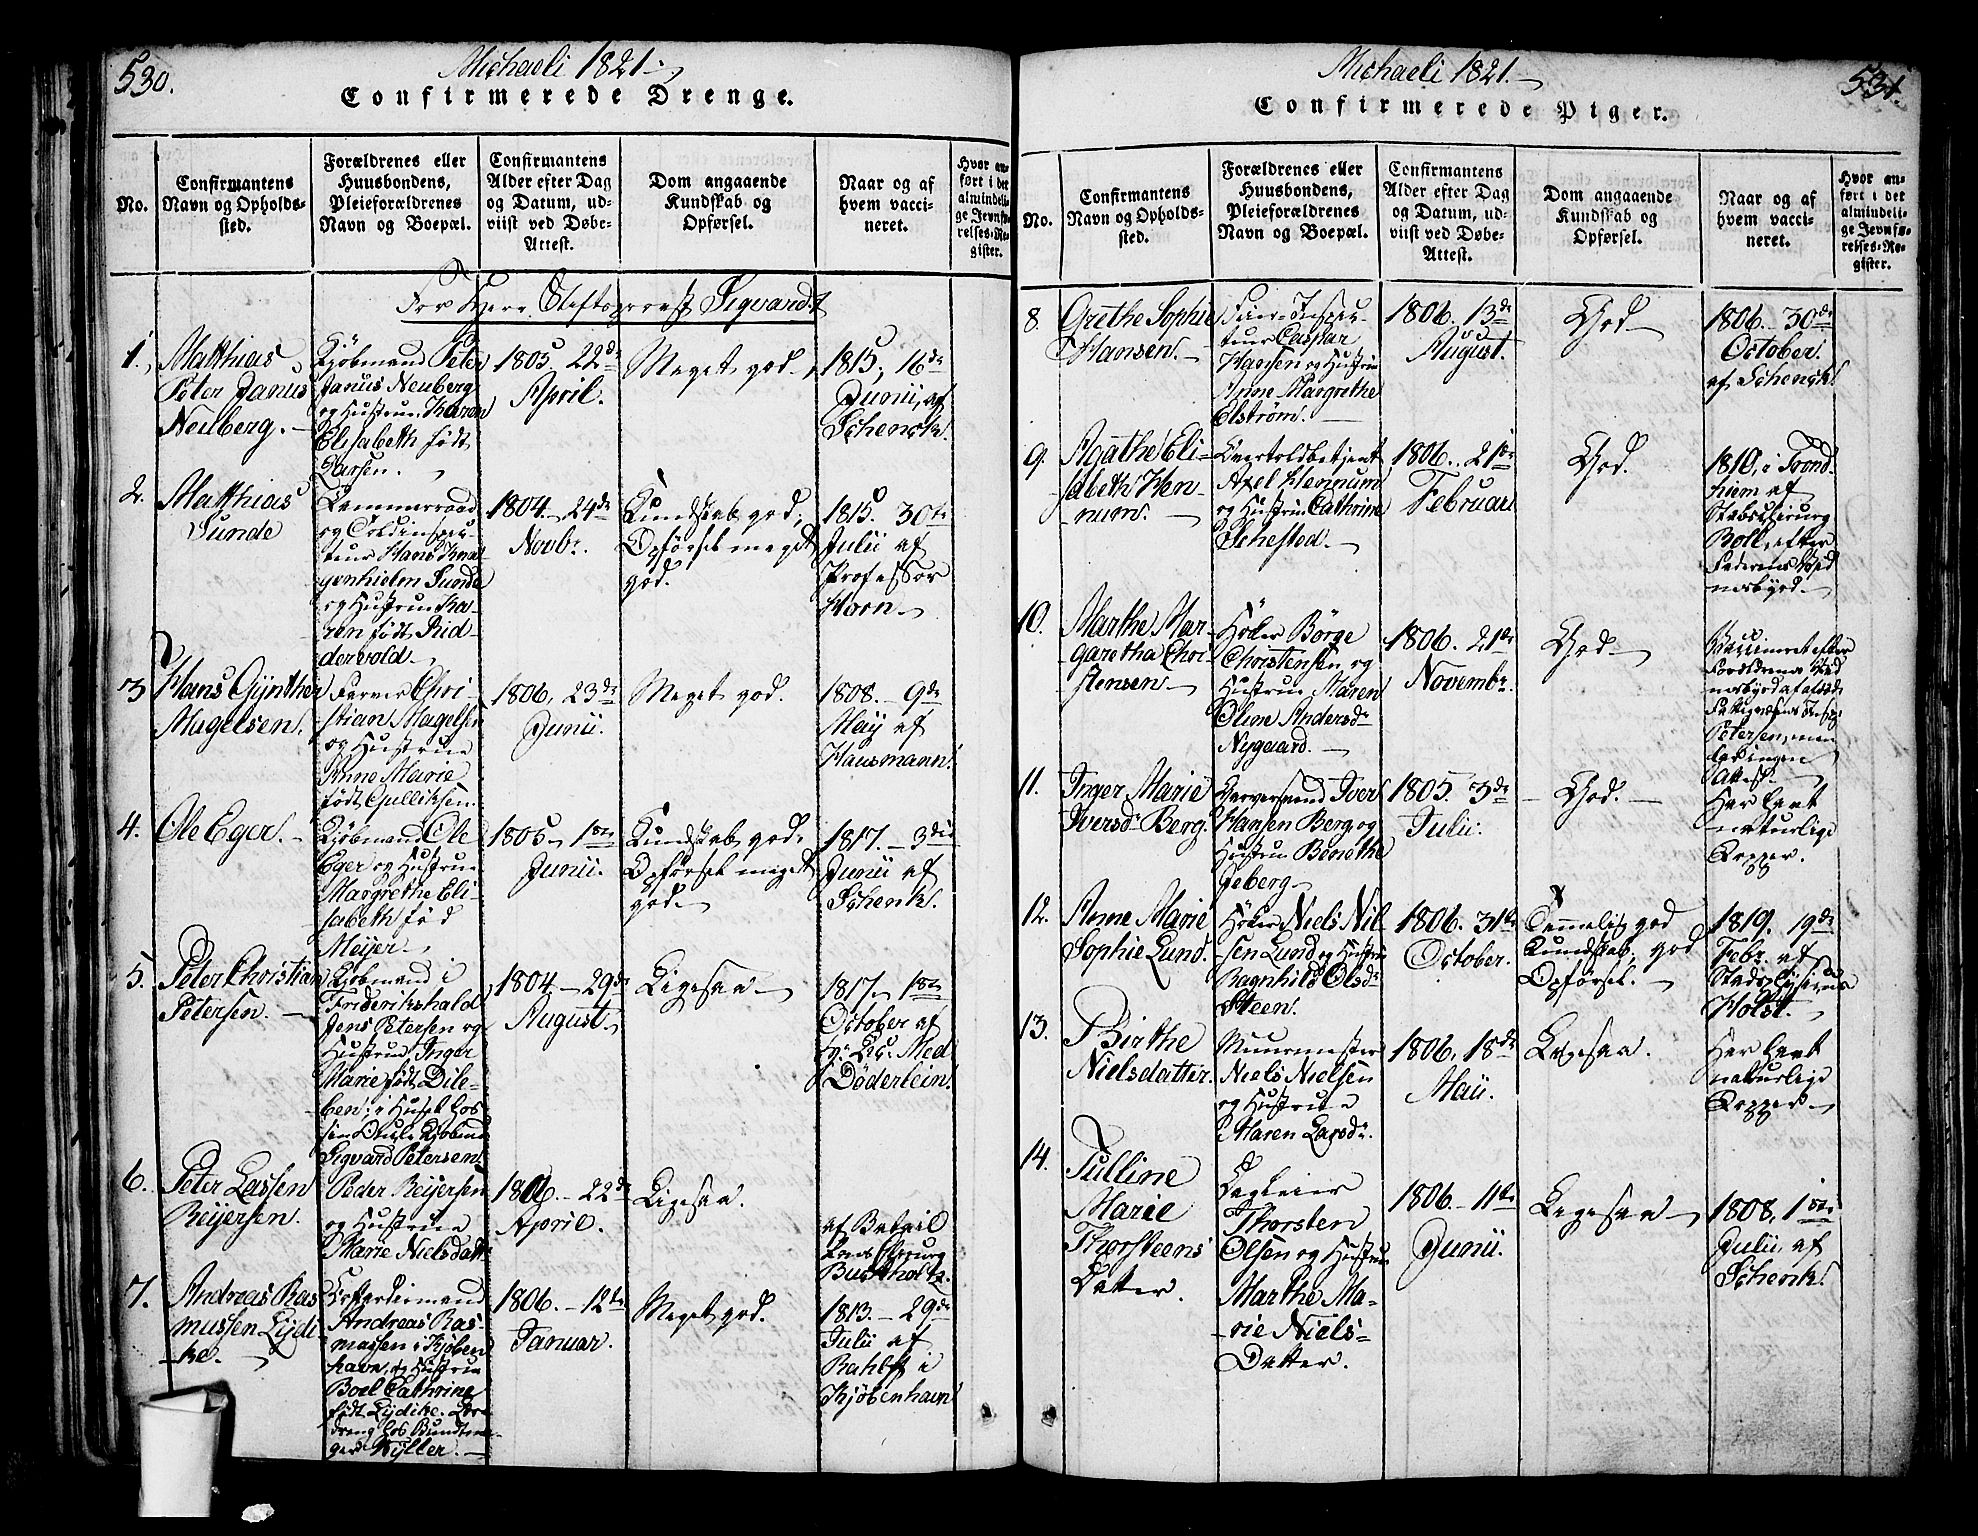 530.
Michaeli 1821.
Confirmerede Drenge.
No.
Confirmantens
Navn og Opholds-
sted.
Forældrenes eller
Huusbondens,
Pleieforældrenes
Navn og Boepæl.
Confirmantens
Alder efter Dag
og Datum, ud-
viist ved Døbe-
Attest.
Dom angaaende
Kundskab og
Opførsel.
Naar og af
hvem vacci-
neret.
Hvor an-
ført i det
almindeli-
ge Jevnfø-
relses-Re-
gister.
For Herr Stiftsprovst Sigvardt
1.
Matthias
Peter Janus
Neuberg.
Kjøbmand Peter
Janus Neuberg
og Hustrue Karen
Elisabeth født
Larsen.
1805, 22de
April.
Meget god.
1815, 16de
Junii, af
Schenck.
2.
Matthias
Sunde
Kammerraad
og Toldinspec-
teur Hans
Sunde
og Hustrue Ka-
ren født Rid-
dervold.
1804. 24de
Novbr.
Kundskab god,
Opførsel meget
god.
1815. 30te
Julii af
Professor
Horn.
3
Hans Gynther
Magelsen.
Farver Chri-
stian Magelsen
og Hustrue
Anne Marie
født Gulliksen.
1806, 23de
Junii.
Meget god.
1808. 9de
May af
Hausmann.
4.
Ole Eger.
Kjøbmand Ole
Eger og Hustrue
Margrethe Eli-
sabeth fød
Meyer.
1805, 1ste
Junii.
Kundskab god,
Opførsel meget
god.
1817. 3die
Junii af
Schenk.
5.
Peter Christian
Petersen.
Kjøbmand i
Friderikshald
Jens Petersen og
Hustrue Inger
Marie født Dile-
ben; i Huset hos
sin Onkel Kjøbmd
Sigvard Petersen.
1804. 29de
August.
Ligesaa.
1817. 1ste
October af
Hr. Lic. Med
Døderlein.
6.
Peter Lassen
Reijersen.
Peder Reijersen
og Hustrue
Marie Nielsdatt
1806. 22de
April.
Ligesaa.
af Batail
lons Chirurg
Buchholtz.
7.
Andreas Ras
mussen Lydi
ke.
Andreas Ras-
mussen i Kjøben
havn, og Hustrue
Boel Cathrine
født Lydike. Lære
dreng hos Bundtma
ger Kyller.
1806. 12te
Januar.
Meget god.
1813. 29de
Julii af
Rahlff i
Kjøbenhavn
Michaeli 1821.
531.
Confirmerede Piger.
No.
Confirmantens
Navn og Opholds-
sted.
Forældrenes eller
Huusbondens,
Pleieforældrenes
Navn og Boepæl.
Confirmantens
Alder efter Dag
og Datum, ud-
viist ved Døbe-
Attest.
Dom angaaende
Kundskab og
Opførsel.
Naar og af
hvem vacci-
neret.
Hvor an-
ført i det
almindeli-
ge Jevnfø-
relses-Re-
gister.
8.
Grethe Sophie
Hansen.
teur Caspar
Hansen og Hustrue
Anne Margrethe
Elstrøm.
1806. 13de
August.
God
1806. 30de
October.
af Schenck.
9.
Agathe Eli-
sabeth Hen-
num.
Overtoldbetjent
Axel Hennum
og Hustrue Cathrine
Schested.
1806. 21de
Februar
God.
1810, i Trond
hiem af
Stabschirurg
Boll, efter
Faderens Vid
nesbyrd.
10.
Marthe Mar-
garetha Chri-
stensen
Høker Børge
Christensen og
Hustrue Maren
Oline Andersdr
Nygaard.
1806. 21de
Novembr.
God
Vaccineret efter
Forældrenes Vid
nesbyrd af afdøde
Fattigvæsens Insp.
Petersen, men
har ingen
Attest.
11.
Inger Marie
Iversdr Berg.
Garversvend Iver
Hansen Berg og
Hustrue Benethe
Jeberg
1805. 3die
Julii.
God.
Har havt
naturlige
Kopper.
12.
Anne Marie
Sophie Lund.
Høker Niels Nil
sen Lund og Hustrue
Ragnhild Olsdr
Steen.
1806. 31te
October.
Temmelig god
Kundskab, god
Opførsel.
1819. 19de
Febr. af
Stadsphysicus
Holst.
13.
Birthe
Nielsdatter.
Muurmester
Niels Nielsen
og Hustrue
Maren Larsdr.
1806, 18de
Maii.
Ligesaa.
Har havt
naturlige
Kopper
14.
Tulline
Marie
Thorsteens
Datter.
Dagleier
Thorsten
Olsen og Hustrue
Marthe Ma-
rie Niels-
Datter.
1806. 11te
Junii.
Ligesaa
1808, 1ste
Julii, af
Schenk.